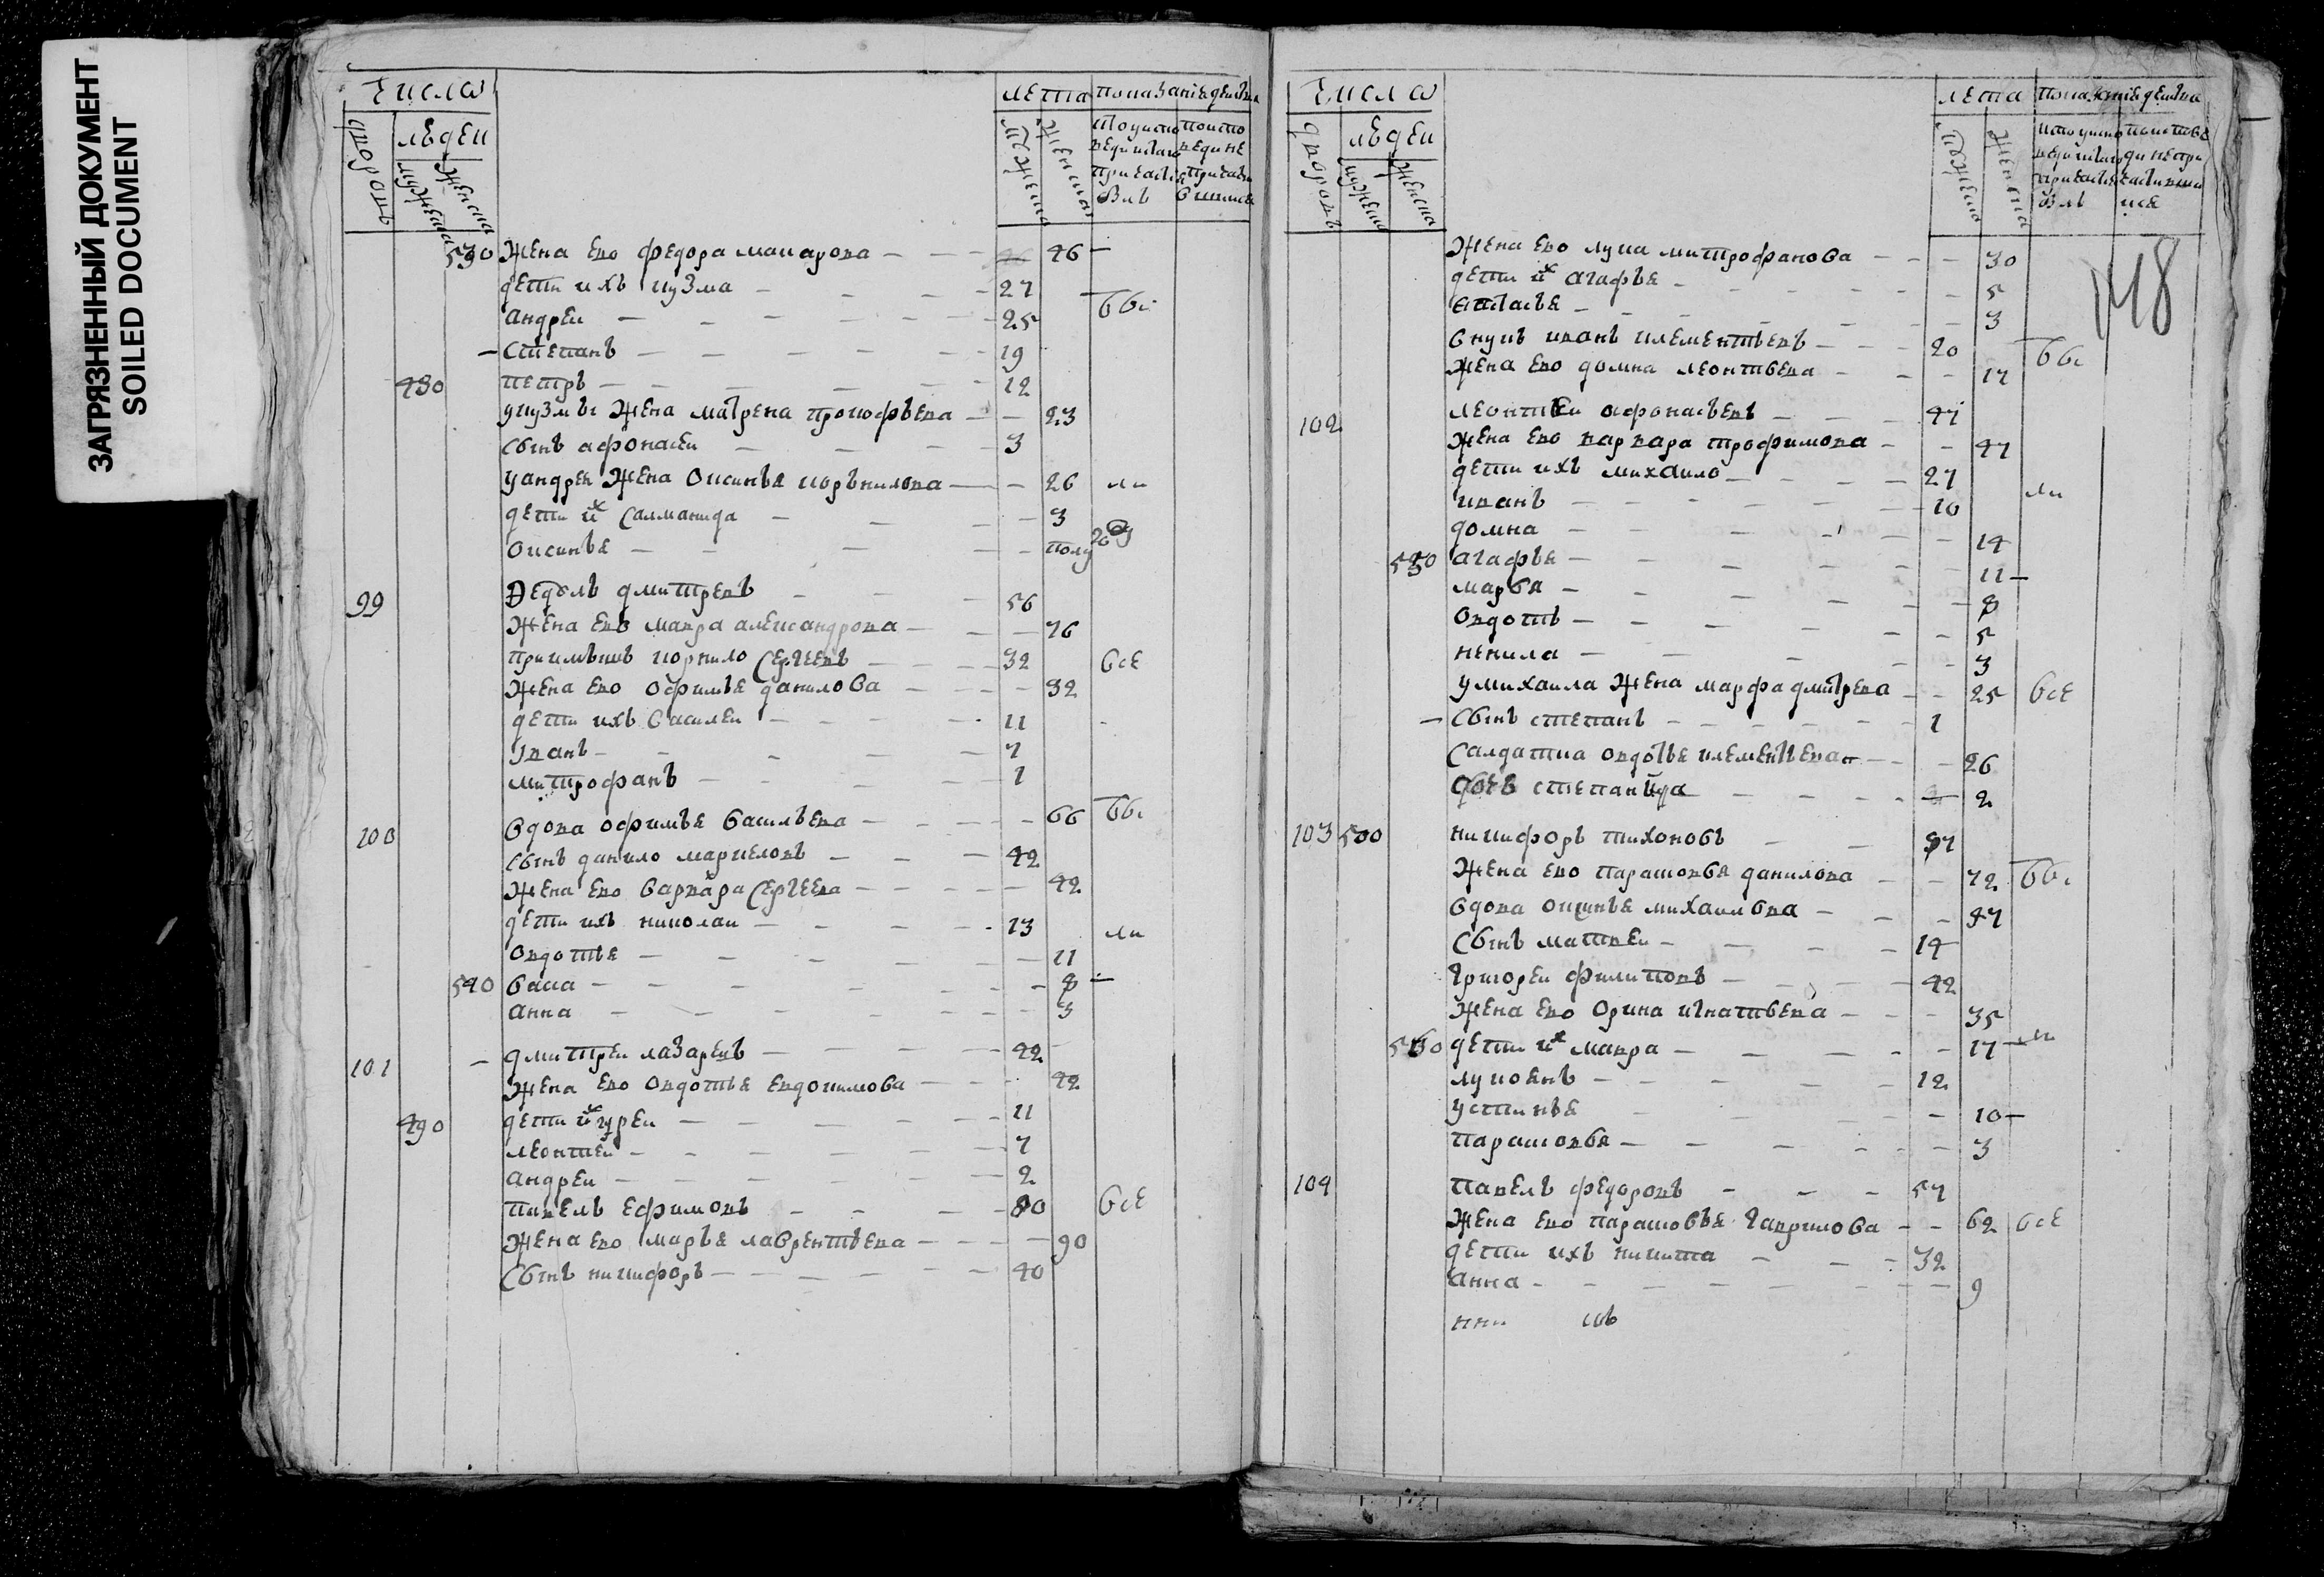 ЗАГРЯЗНЕННЫЙ ДОКУМЕНТ
SOILED DOCUMENT
Числа
людеи
дворовъ
мужеска
женска
лета
мужеска
женска
показание действа
530 жена ево федора макарова 46
дети ихъ кузма 27
андреи 25
степанъ 19
480 петръ 12
у кузмы жена матрена прокофьева 23
сынъ афонасеи 3
у андреи жена оксинья корънилова 26
дети их саламанида 3
оксинья полу году
99 Федолъ дмитревъ 56
жена ево мавра александрова 76
приимышъ корнило сергеевъ 32 все
жена ево офимья данилова 32
дети ихъ василеи 11
иванъ 7
митрофанъ 1
100 вдова офимья васильева 66
сынъ данило маркеловъ 42
жена ево варвара сергеева 42
дети ихъ николаи 13
овдотья 11
540 васа 8
анна 3
101 дмитреи лазаревъ 42
жена ево овдотья евдокимова 42
490 дети их гуреи 11
леонтеи 7
андреи 2
павелъ ефимовъ 80 все
жена ево марья лаврентьева 90
сынъ никифоръ 40
Числа
людеи
дворовъ
мужеска
женска
лета
мужеска
женска
показание действа
148
жена ево лука митрофанова 30
дети их агафья 5
3
внукъ иванъ клементьевъ 20
жена ево домна леонтьева 17
102 леонтеи афонасьевъ 47
жена ево варвара трофимова 47
дети ихъ михаило 27
иванъ 10
домна 14
550 агафья 11
марва 8
овдоть 5
ненила 3
у михаила жена марфа дмитрева 25 все
сынъ степанъ 1
салдатка овдотья клементьева 26
дочь степанида 2
103 500 никифоръ тихоновъ
жена ево парасковья данилова 72
вдова оксинья михаилова 47
сынъ матвеи 14
григореи филиповъ 42
жена ево орина игнатьева 35
560 дети их мавра 17
лукоянъ 12
устинья 10
парасковья 3
104 павелъ федоровъ 57
жена ево парасковья гаврилова 62 все
дети ихъ никита 32
анна 9